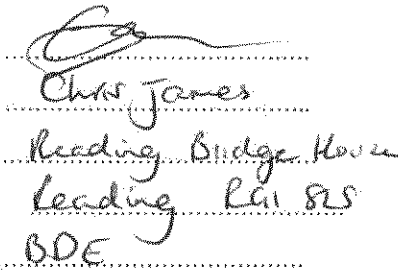 Chris James
Reading Bridge House
Reading RG1 8LS
BDE